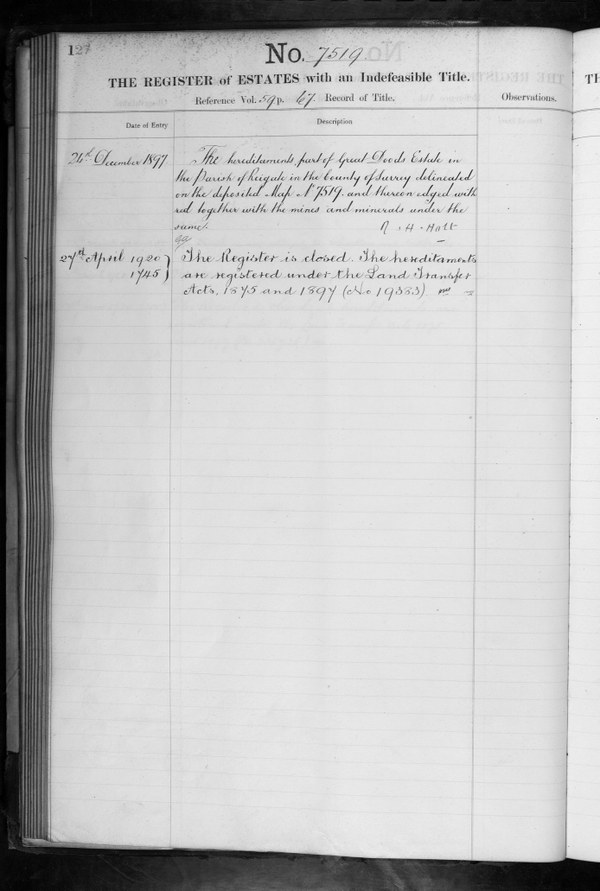 127
No. 7519.
THE REGISTER of ESTATES with an Indefeasible Title.
Reference Vol. 59 p. 67 Record of Title.
Observations.
Date of Entry
Description
The hereditaments, part of Great Doods Estate in
December 1897
the Parish of Reigate in the County of Surrey delineated
on the deposited Map No 7519. and thereon edged with
red together with the mines and minerals under the
same.
R. H. Holt
27th April 1920
The Register is closed. The hereditaments
1745
are registered under the Land Transfer
Acts, 1875 and 1897 (No 19383).
TH